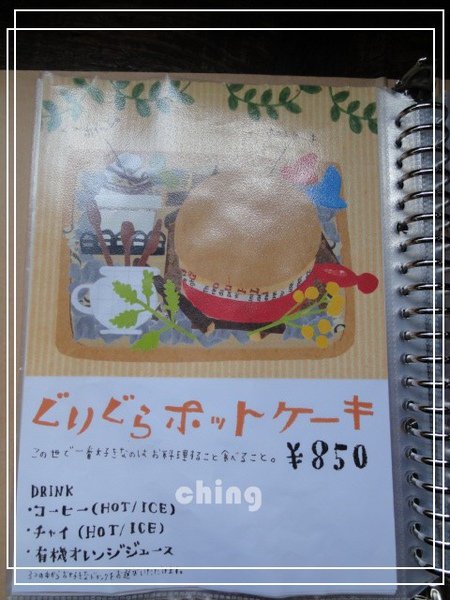 ぐりぐらホットケーキ
この世で一番好きなのはお料理すること食べること。
¥850
ching
DRINK
・コーヒー(HOT/ICE)
・チャイ(HOT/ICE)
・有機オレンジジュース